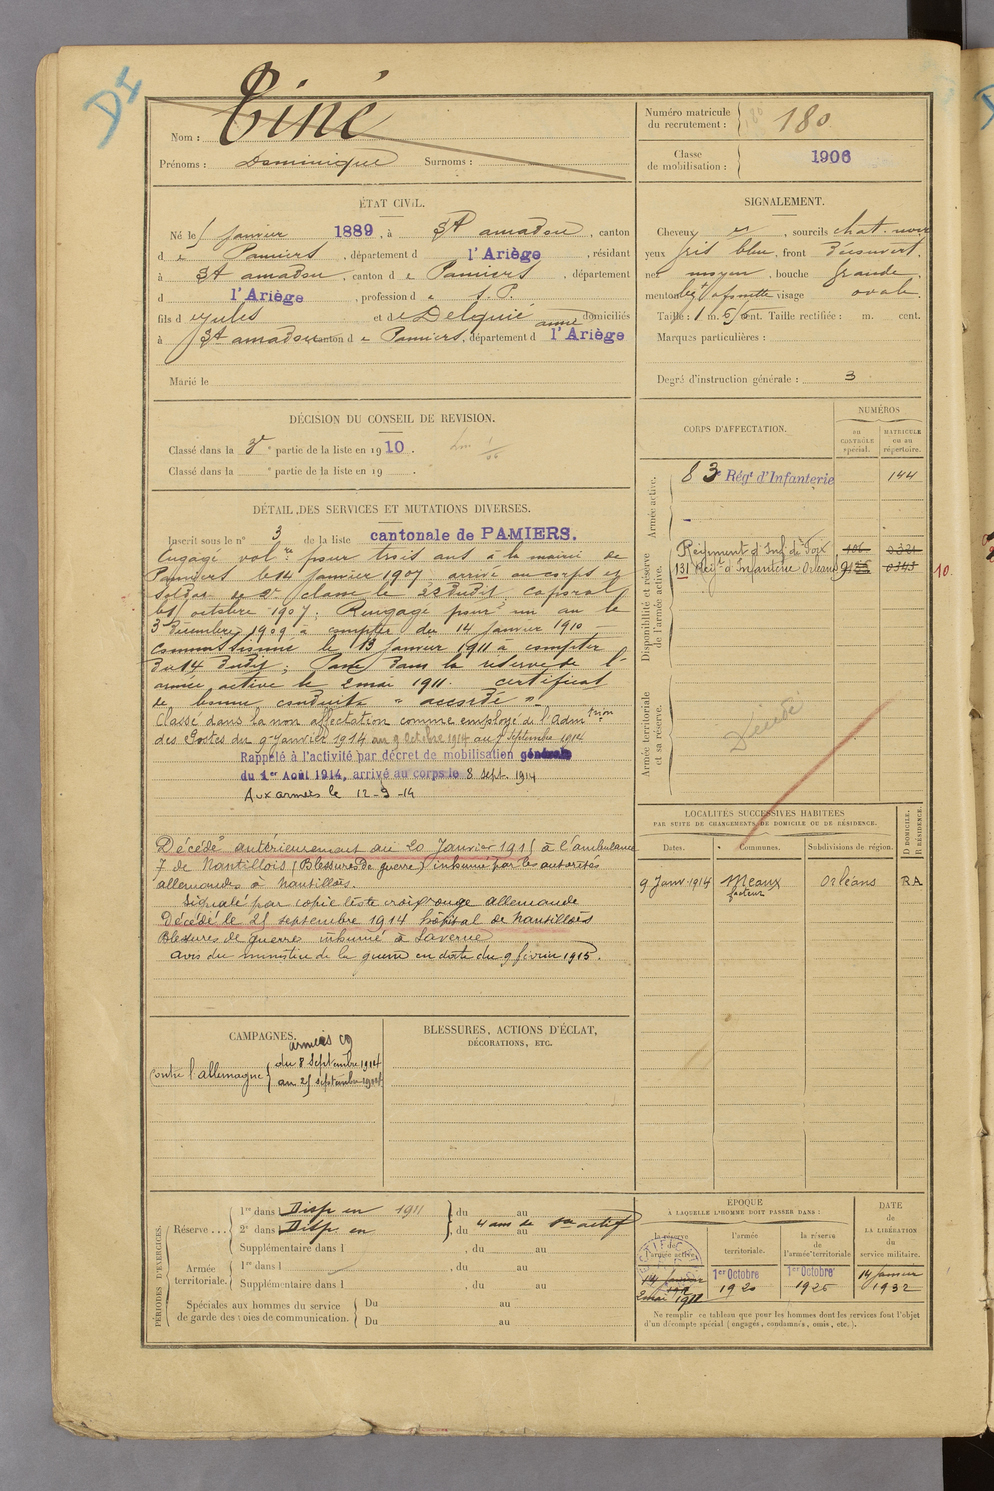 DI
Nom : Ciné
Prénoms : Dominique Surnoms :
Numéro matricule du recrutement : 180
Classe de mobilisation : 1906
ÉTAT CIVIL.
Né le 5 janvier 1889, à St amadou, canton
de Pamiers, département d l'Ariège, résidant
à St amadou, canton de Pamiers, département
d l'Ariège, profession de s. P.
fils de Jules et de Delquié anne domiciliés
à St amadou canton de Pamiers, département d l'Ariège
Marié le
SIGNALEMENT.
Cheveux et, sourcils chat. noir
yeux gris bleu, front Découvert.
nez moyen, bouche grande,
menton visage ovale.
Taille : 1 m. cent. Taille rectifiée : m. cent.
Marques particulières :
Degré d'instruction générale : 3
DÉCISION DU CONSEIL DE REVISION.
Classé dans la 3e partie de la liste en 1910
Classé dans la e partie de la liste en 19 .
DÉTAIL DES SERVICES ET MUTATIONS DIVERSES.
Inscrit sous le n° 3 de la liste cantonale de PAMIERS.
Engagé volre pour trois ans à la mairie de
Pamiers le 14 janvier 1907, arrivé au corps et
soldat de 2e classe le 22 dudit, caporal
le octobre 1907. Rengagé pour un an le
3 Décembre 1909 à compter du 14 janvier 1910
Commissionné le 13 janvier 1911 à compter
du 14 dudit; Passé dans la réserve de l'
armée active le 2 mai 1911. certificat
de bonne conduite "accordé"
Classé dans la non affectation comme employé de l'Admtion
des Postes du 9 Janvier 1914 au 9 Octobre 1914 au 7 septembre 1914
Rappelé à l'activité par décret de mobilisation générale
du 1er Août 1914, arrivé au corps le 8 sept. 1914
Aux armées le 12-9-14
Décédé antérieurement au 20 Janvier 1915 à l'ambulance
7 de Nantillois (Blessures de guerre) inhumé par les autorités
allemandes à Nantillois.
Signalé par copie liste croix rouge allemande
Décédé le 25 septembre 1914 hôpital de Nantillois
Blessures de guerre inhumé à Laverne
avis du ministère de la guerre en date du 9 février 1915.
CORPS D'AFFECTATION.
NUMÉROS
au CONTRÔLE spécial.
MATRICULE ou au répertoire.
Armée active.
83e Régt d'Infanterie 144
Disponibilité et réserve de l'armée active.
Régiment d'Inf. de Foix 0321
131 Régt d'Infanterie Orléans 0343 10.
Armée territoriale et sa réserve.
Décédé
LOCALITÉS SUCCESSIVES HABITÉES
PAR SUITE DE CHANGEMENTS DE DOMICILE OU DE RÉSIDENCE.
Dates. Communes. Subdivisions de région. D DOMICILE. R RÉSIDENCE.
9 Janv. 1914 Meaux Orléans RA
facteur
CAMPAGNES.
armées
Contre l'allemagne
du 8 Septembre 1914
au 25 septembre 1914
BLESSURES, ACTIONS D'ÉCLAT,
DÉCORATIONS, ETC.
PÉRIODES D'EXERCICES.
Réserve ... 1re dans l Disp en 1911 du au
2e dans l Disp. en du 4 ans de actif au
Supplémentaire dans l , du au
Armée territoriale. 1re dans l , du au
Supplémentaire dans l , du au
Spéciales aux hommes du service de garde des voies de communication. Du au
Du au
ÉPOQUE
À LAQUELLE L'HOMME DOIT PASSER DANS :
la réserve de l'armée active
l'armée territoriale.
la réserve de l'armée territoriale
DATE de LA LIBÉRATION du service militaire.
14 janvier
2 mai 1911
1er Octobre 1920
1er Octobre 1926
14 Janvier 1932
Ne remplir ce tableau que pour les hommes dont les services font l'objet
d'un décompte spécial (engagés, condamnés, omis, etc.).